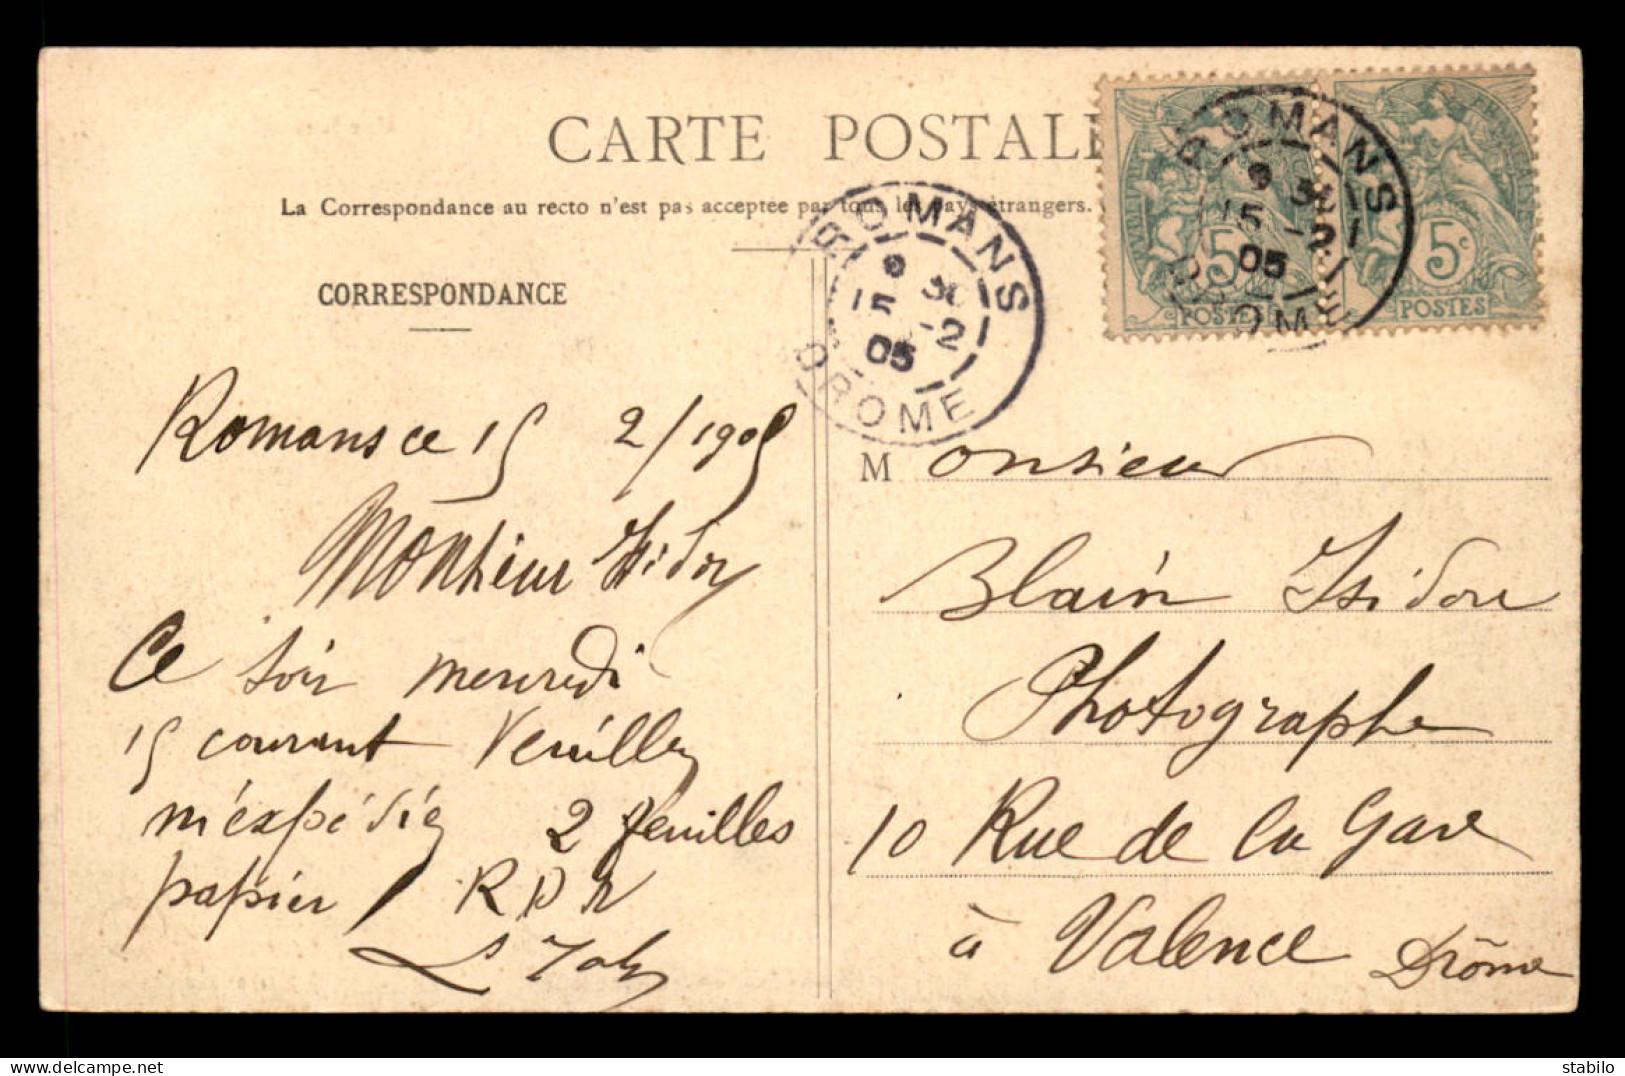 CARTE POSTALE
La Correspondance au recto n'est pas acceptée par tous les pays étrangers.
CORRESPONDANCE
ROMANS
9 30
15 -2
05
DROME
ROMANS
9 30
15 -2
05
DROME
5c
POSTES
5c
POSTES
Romans ce 15 2/1905
Monsieur Isidor
Ce soir mercredi
15 courant Veuillez
m'éxpédiez 2 feuilles
papier
Monsieur
Blain Isidore
Photographe
10 Rue de la Gare
à Valence Drôme
stabilo | delcampe.net